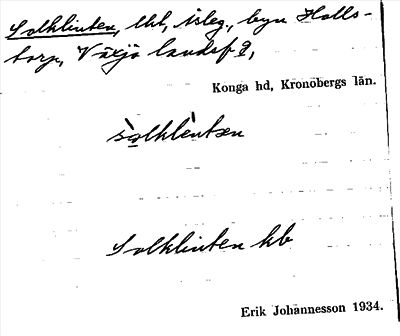 Solklinten, lht, isleg., byn Halls-
torp, Växjö landsf 9,
Konga hd, Kronobergs län.
sòlklèntən
Solklinten kb
Erik Johannesson 1934.